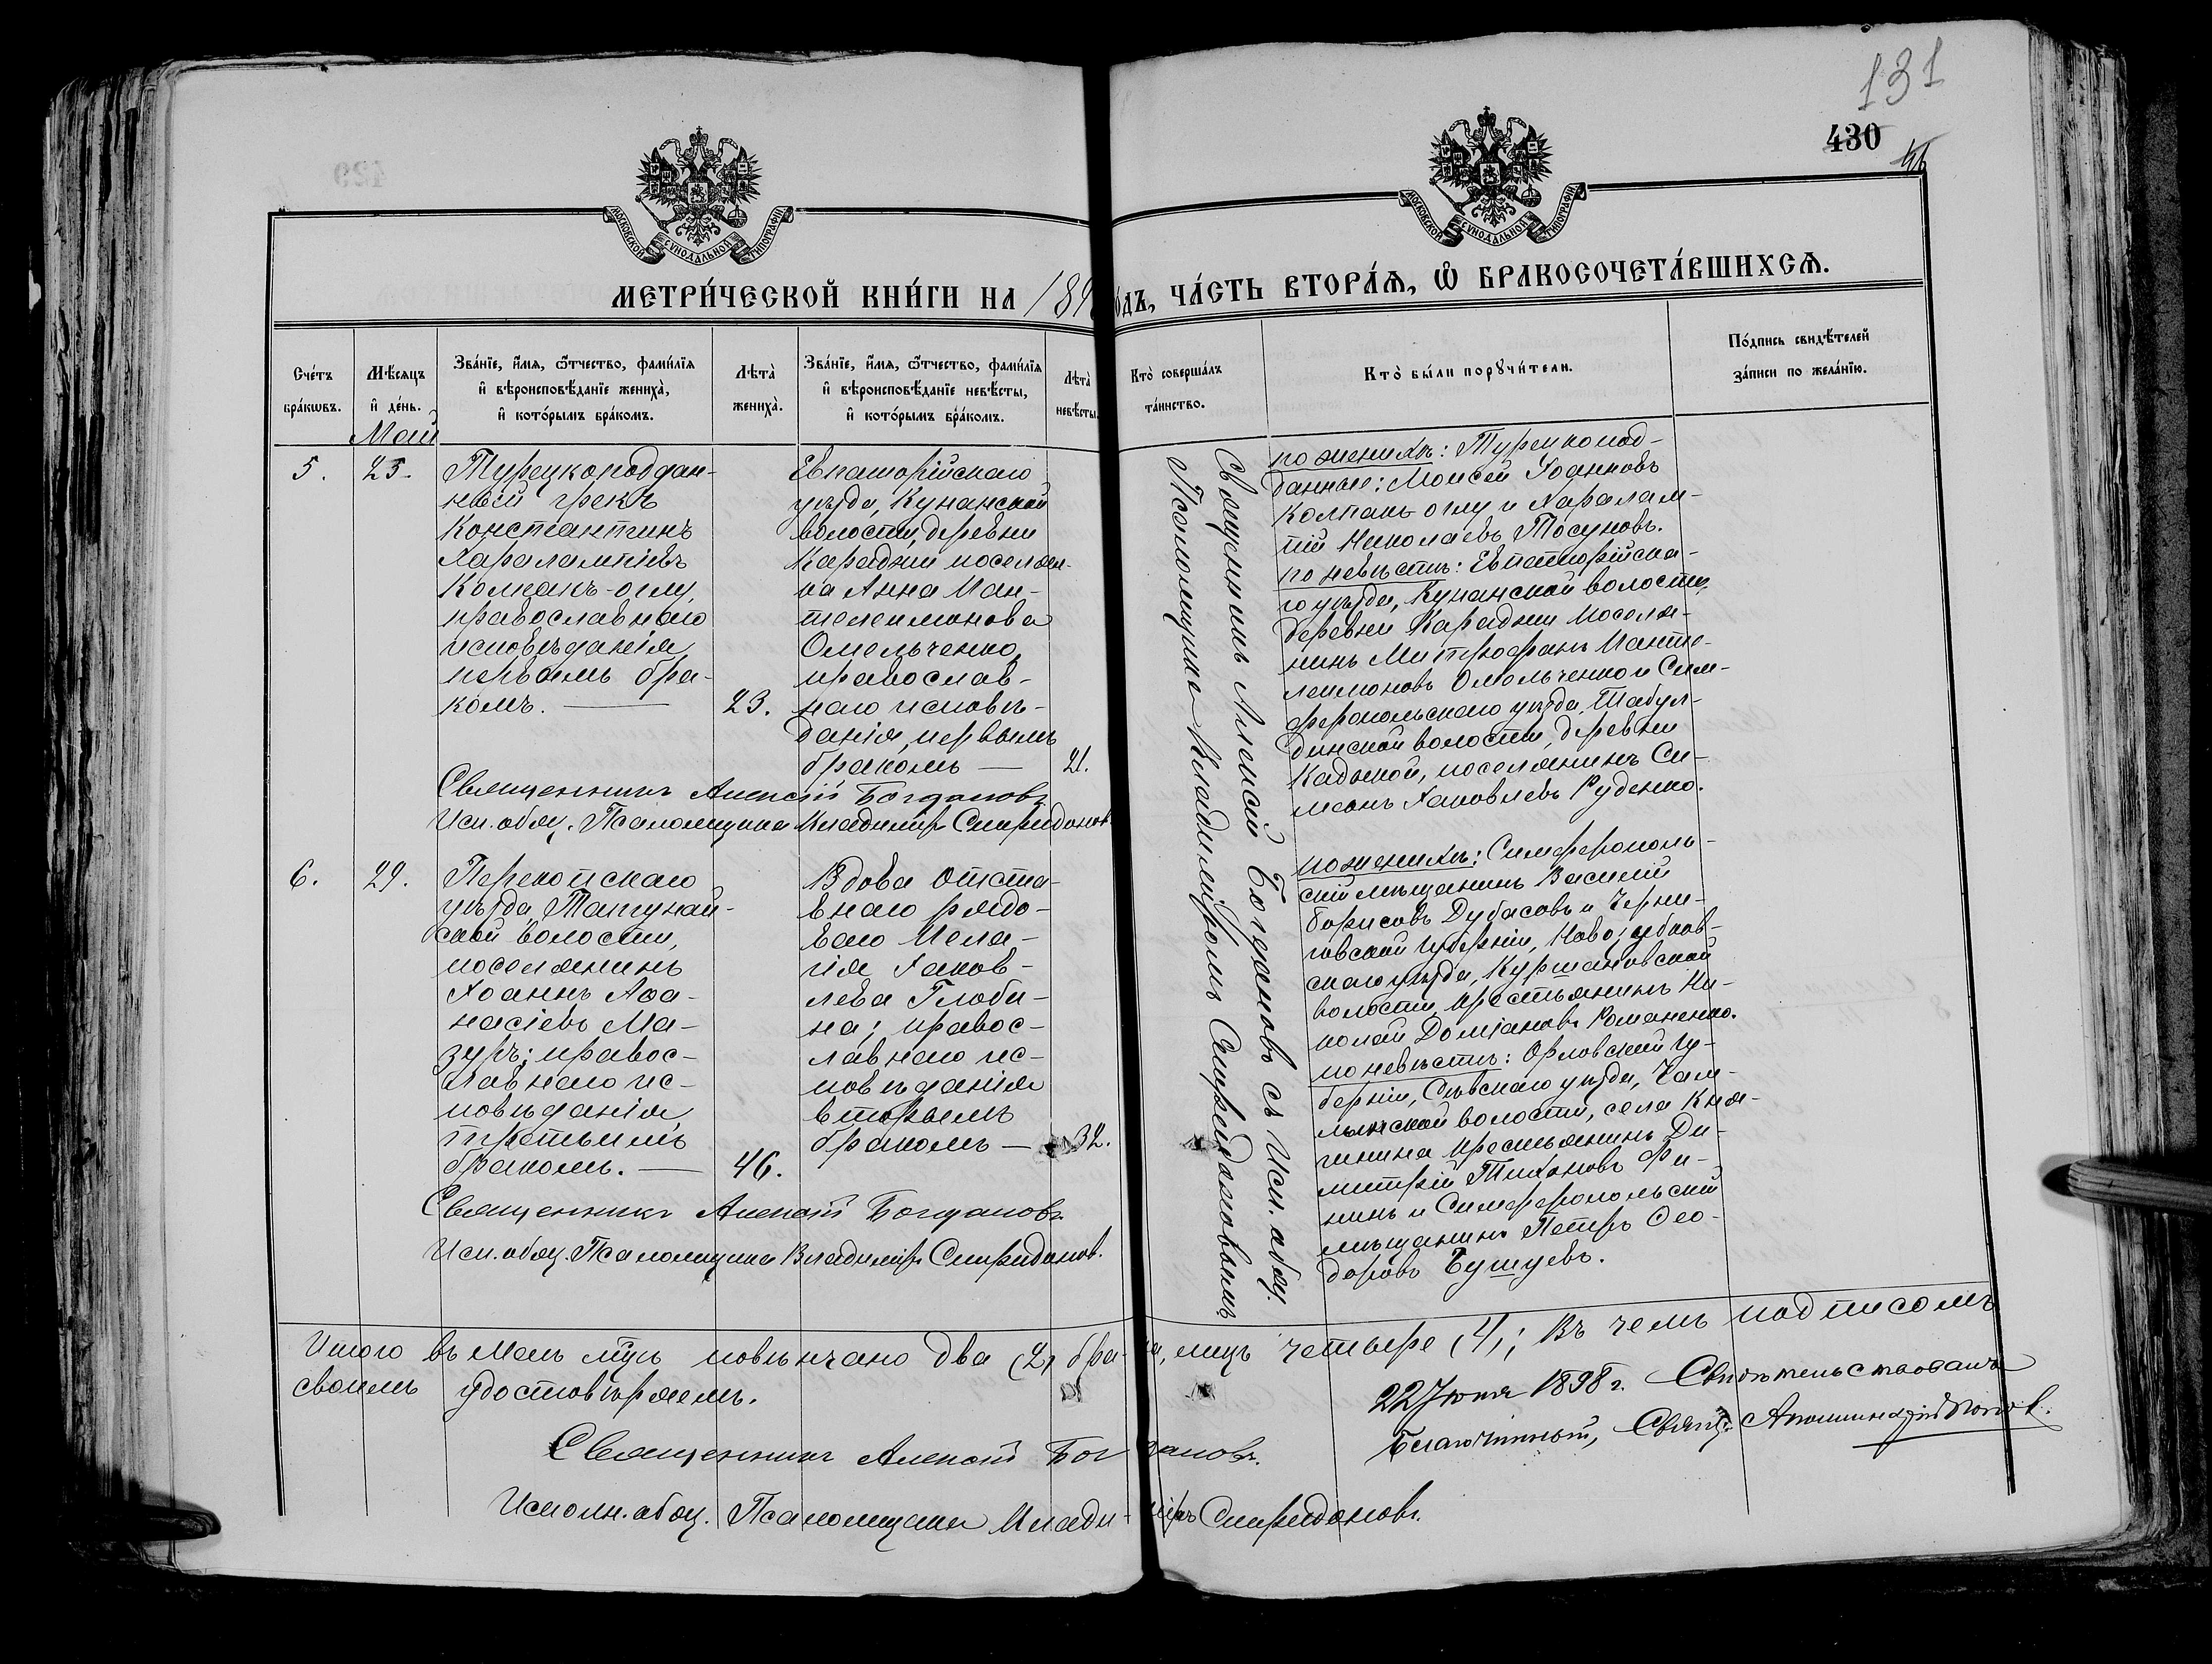 131
430
МОСКОВСКОЙ СѴНОДАЛЬНОЙ ТИПОГРАФІИ
МОСКОВСКОЙ СѴНОДАЛЬНОЙ ТИПОГРАФІИ
МЕТРИ́ЧЕСКОЙ КНИ́ГИ НА 189
о́дъ, ЧА́СТЬ ВТОРА́Ѧ, Ѽ БРАКОСОЧЕТА́ВШИХСѦ.
Сче́тъ
бра́кѡвъ.
Мѣ́сяцъ
и҆ де́нь.
Зва́нїе, и҆́мя, ѻ҆́тчество, фами́лїя
и҆ вѣроисповѣ́данїе жениха̀,
и҆ кото́рымъ бра́комъ.
Лѣта̀
жениха̀.
Зва́нїе, и҆́мя, ѻ҆́тчество, фами́лїя
и҆ вѣроисповѣ́данїе невѣ́сты,
и҆ кото́рымъ бра́комъ.
Лѣта̀
невѣ́сты.
Кто̀ соверша́лъ
та́инство.
Кто̀ бы́ли порꙋчи́тели.
По́дпись свидѣ́телей
за́писи по жела́нїю.
Май
5.
23.
Турецкоподдан-
ный грекъ
Константинъ
Харалампіевъ
Колпакъ-оглу,
православнаго
исповѣданія,
первымъ бра-
комъ.
23.
Евпаторійскаго
уѣзда, Кунанской
волости, деревни
Караджи поселян-
ка Анна Пан-
телеимонова
Омельченко,
православ-
наго исповѣ-
данія, первымъ
бракомъ
21.
Священникъ Алексій Богдановъ.
Исп. обяз. Псаломщика Владиміръ Спиридоновъ
Священникомъ Алексій Богдановъ съ Исп. обяз.
Псаломщика Владиміромъ Спиридоновымъ
по женихѣ: Турецкопод-
данные: Моисей Іоанновъ
Колпакъ-оглу и Харалам-
пій Николаевъ Тосуновъ.
по невѣстѣ: Евпаторійска-
го уѣзда, Кунанской волости,
деревни Караджи поселя-
нинъ Митрофанъ Панте-
леимоновъ Омельченко и Сим-
феропольскаго уѣзда, Табул-
динской волости, деревни
Кадыкой, поселянинъ Си-
меонъ Іаковлевъ Руденко.
6.
29.
Перекопскаго
уѣзда, Тагунай-
ской волости,
поселянинъ
Іоаннъ Аѳа-
насіевъ Ма-
зуръ; правос-
лавнаго ис-
повѣданія,
третьимъ
бракомъ.
46.
Вдова отста-
внаго рядо-
ваго Пела-
гія Іаков-
лева Глоби-
на; правос-
лавнаго ис-
повѣданія
вторымъ
бракомъ
32.
Священникъ Алексій Богдановъ.
Исп. обяз. Псаломщика Владиміръ Спиридонов.
по женихѣ: Симферополь-
скій мѣщанинъ Василій
Борисовъ Дубасовъ и Черни-
говской губерніи, Новозыбков-
скаго уѣзда, Куршановской
волости, крестьянинъ Ни-
колай Доміановъ Романенко.
по невѣстѣ: Орловской гу-
берніи, Сѣвскаго уѣзда, Чем-
лыжской волости, села Кня-
гинина крестьянинъ Ди-
митрій Тихановъ Фи-
нинъ и Симферопольскій
мѣщанинъ Петръ Ѳео-
доровъ Бушуевъ.
Итого въ Маѣ мѣс̃ повѣнчано два (2) бра-ка, лицъ четыре (4); Въ чемъ подписомъ
своимъ удостовѣряемъ.
Священникъ Алексій Богдановъ.
Исполн. обяз. Псаломщика Владиміръ Спиридоновъ.
22 Іюня 1898 г. Свидѣтельствовалъ
Благочинный, Свящ.